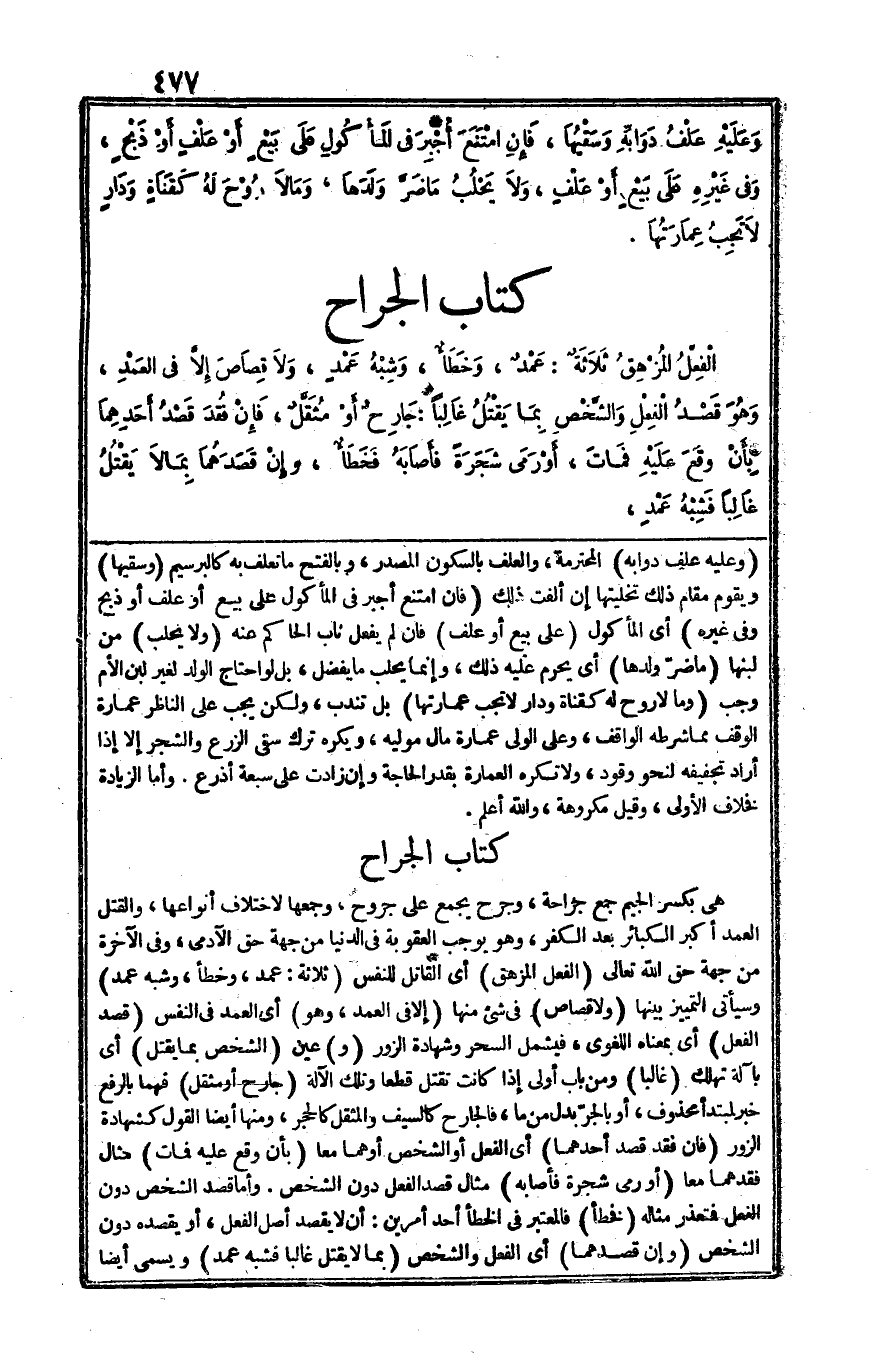 ٤٧٧
وَعَلَيْهِ عَلْفُ دَوَابِّهِ وَسَقْيُهَا ، فَإِنِ امْتَنَعَ أُجْبِرَ فِى الْمَأْكُولِ عَلَى بَيْعٍ أَوْ عَلْفٍ أَوْ ذَبْحٍ ،
وَفِى غَيْرِهِ عَلَى بَيْعٍ أَوْ عَلْفٍ ، وَلاَ يَحْلُبُ مَاضَرَّ وَلَدَهَا ، وَمَالاَ رُوْحَ لَهُ كَقَنَاةٍ وَدَارٍ
لاَتَجِبُ عِمَارَتُهَا .
كتاب الجراح
الْفِعْلُ الْمُزْهِقُ ثَلاَثَةٌ : عَمْدٌ ، وَخَطَأٌ ، وَشِبْهُ عَمْدٍ ، وَلاَ قِصَاصَ إِلاَّ فِى الْعَمْدِ ،
وَهُوَ قَصْدُ الْفِعْلِ وَالشَّخْصِ بِمَا يَقْتُلُ غَالِباً : جَارِحٌ أَوْ مُثَقَّلٌ ، فَإِنْ فُقِدَ قَصْدُ أَحَدِهِمَا
بِأَنْ وقَعَ عَلَيْهِ فَمَاتَ ، أَوْرَمَى شَجَرَةً فَأَصَابَهُ فَخَطَأٌ ، وإِنْ قَصَدَهُمَا بِمَالاَ يَقْتُلُ
غَالِباً فَشِبْهُ عَمْدٍ ،
(وعليه علف دوابه) المحترمة ، والعلف بالسكون المصدر ، وبالفتح ماتعلف به كالبرسيم (وسقيها)
ويقوم مقام ذلك تخليتها إن ألفت ذلك (فان امتنع أجبر فى المأكول على بيع أو علف أو ذبح
وفى غيره) أى المأكول (على بيع أو علف) فان لم يفعل ناب الحاكم عنه (ولايحلب) من
لبنها (ماضرّ ولدها) أى يحرم عليه ذلك ، وإنما يحلب مايفضل ، بل لواحتاج الولد لغير لبن الأم
وجب (وما لاروح له كقناة ودار لاتجب عمارتها) بل تندب ، ولكن يجب على الناظر عمارة
الوقف بماشرطه الواقف ، وعلى الولى عمارة مال موليه ، ويكره ترك سقى الزرع والشجر إلا إذا
أراد تجفيفه لنحو وقود ، ولاتكره العمارة بقدرالحاجة وإن زادت على سبعة أذرع . وأما الزيادة
نخلاف الأولى ، وقيل مكروهة ، والله أعلم .
كتاب الجراح
هى بكسر الجيم جمع جراحة ، وجرح يجمع على جروح ، وجمعها لاختلاف أنواعها ، والقتل
العمد أكبر الكبائر بعد الكفر ، وهو يوجب العقوبة فى الدنيا من جهة حق الآدمى ، وفى الآخرة
من جهة حق الله تعالى (الفعل المزهق) أى القاتل للنفس (ثلاثة : عمد ، وخطأ ، وشبه عمد)
وسيأتى التمييز بينها (ولاقصاص) فى شئ منها (إلافى العمد ، وهو) أى العمد فى النفس (قصد
الفعل) أى بمعناه اللغوى ، فيشمل السحر وشهادة الزور (و) عين (الشخص بمايقتل) أى
بآلة تهلك (غالبا) ومن باب أولى إذا كانت تقتل قطعا وتلك الآلة (جارح أومثقل) فهما بالرفع
خبر لمبتدأ محذوف ، أو بالجرّ بدل من ما ، فالجارح كالسيف والمثقل كالحجر ، ومنها أيضا القول كشهادة
الزور (فان فقد قصد أحدهما) أى الفعل أوالشخص أوهما معا (بأن وقع عليه فمات) مثال
فقدهما معا (أو رمى شجرة فأصابه) مثال قصدالفعل دون الشخص . وأماقصد الشخص دون
الفعل فتعذر مثاله (فخطأ) فالمعتبر فى الخطأ أحد أمرين : أن لايقصد أصل الفعل ، أو يقصده دون
الشخص (وإن قصدهما) أى الفعل والشخص (بما لايقتل غالبا فشبه عمد) ويسمى أيضا